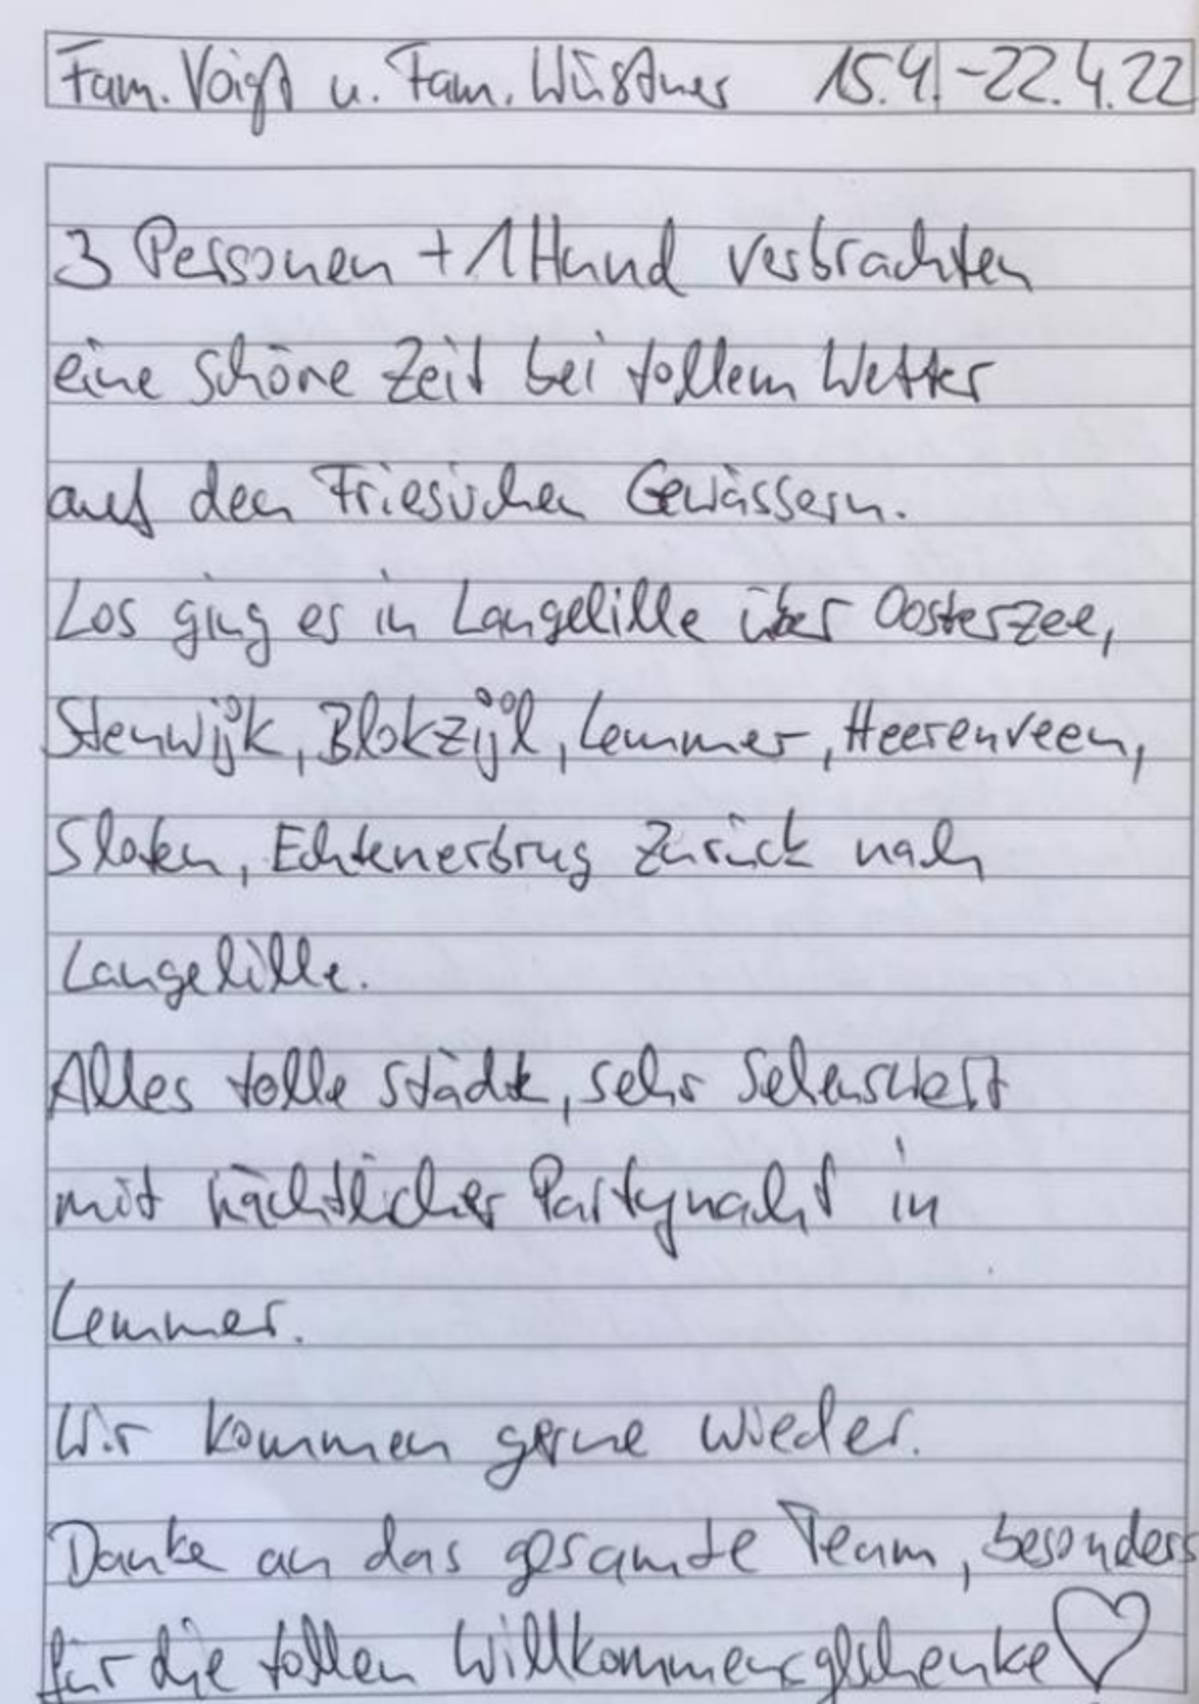 Fam. Voigt u. Fam. Wüstner 15.4.-22.4.22
3 Personen + 1 Hund verbrachten
eine schöne Zeit bei tollem Wetter
auf den Friesischen Gewässern.
Los ging es in Langelille über Oosterzee,
Stenwijk, Blokzijl, Lemmer, Heerenveen,
Sloten, Echtenerbrug zurück nach
Langelille.
Alles tolle Städte, sehr Sehenswert
mit nächtlicher Partynacht in
Lemmer.
Wir kommen gerne wieder.
Danke an das gesamte Team, besonders
für die tollen Willkommensgeschenke ♡